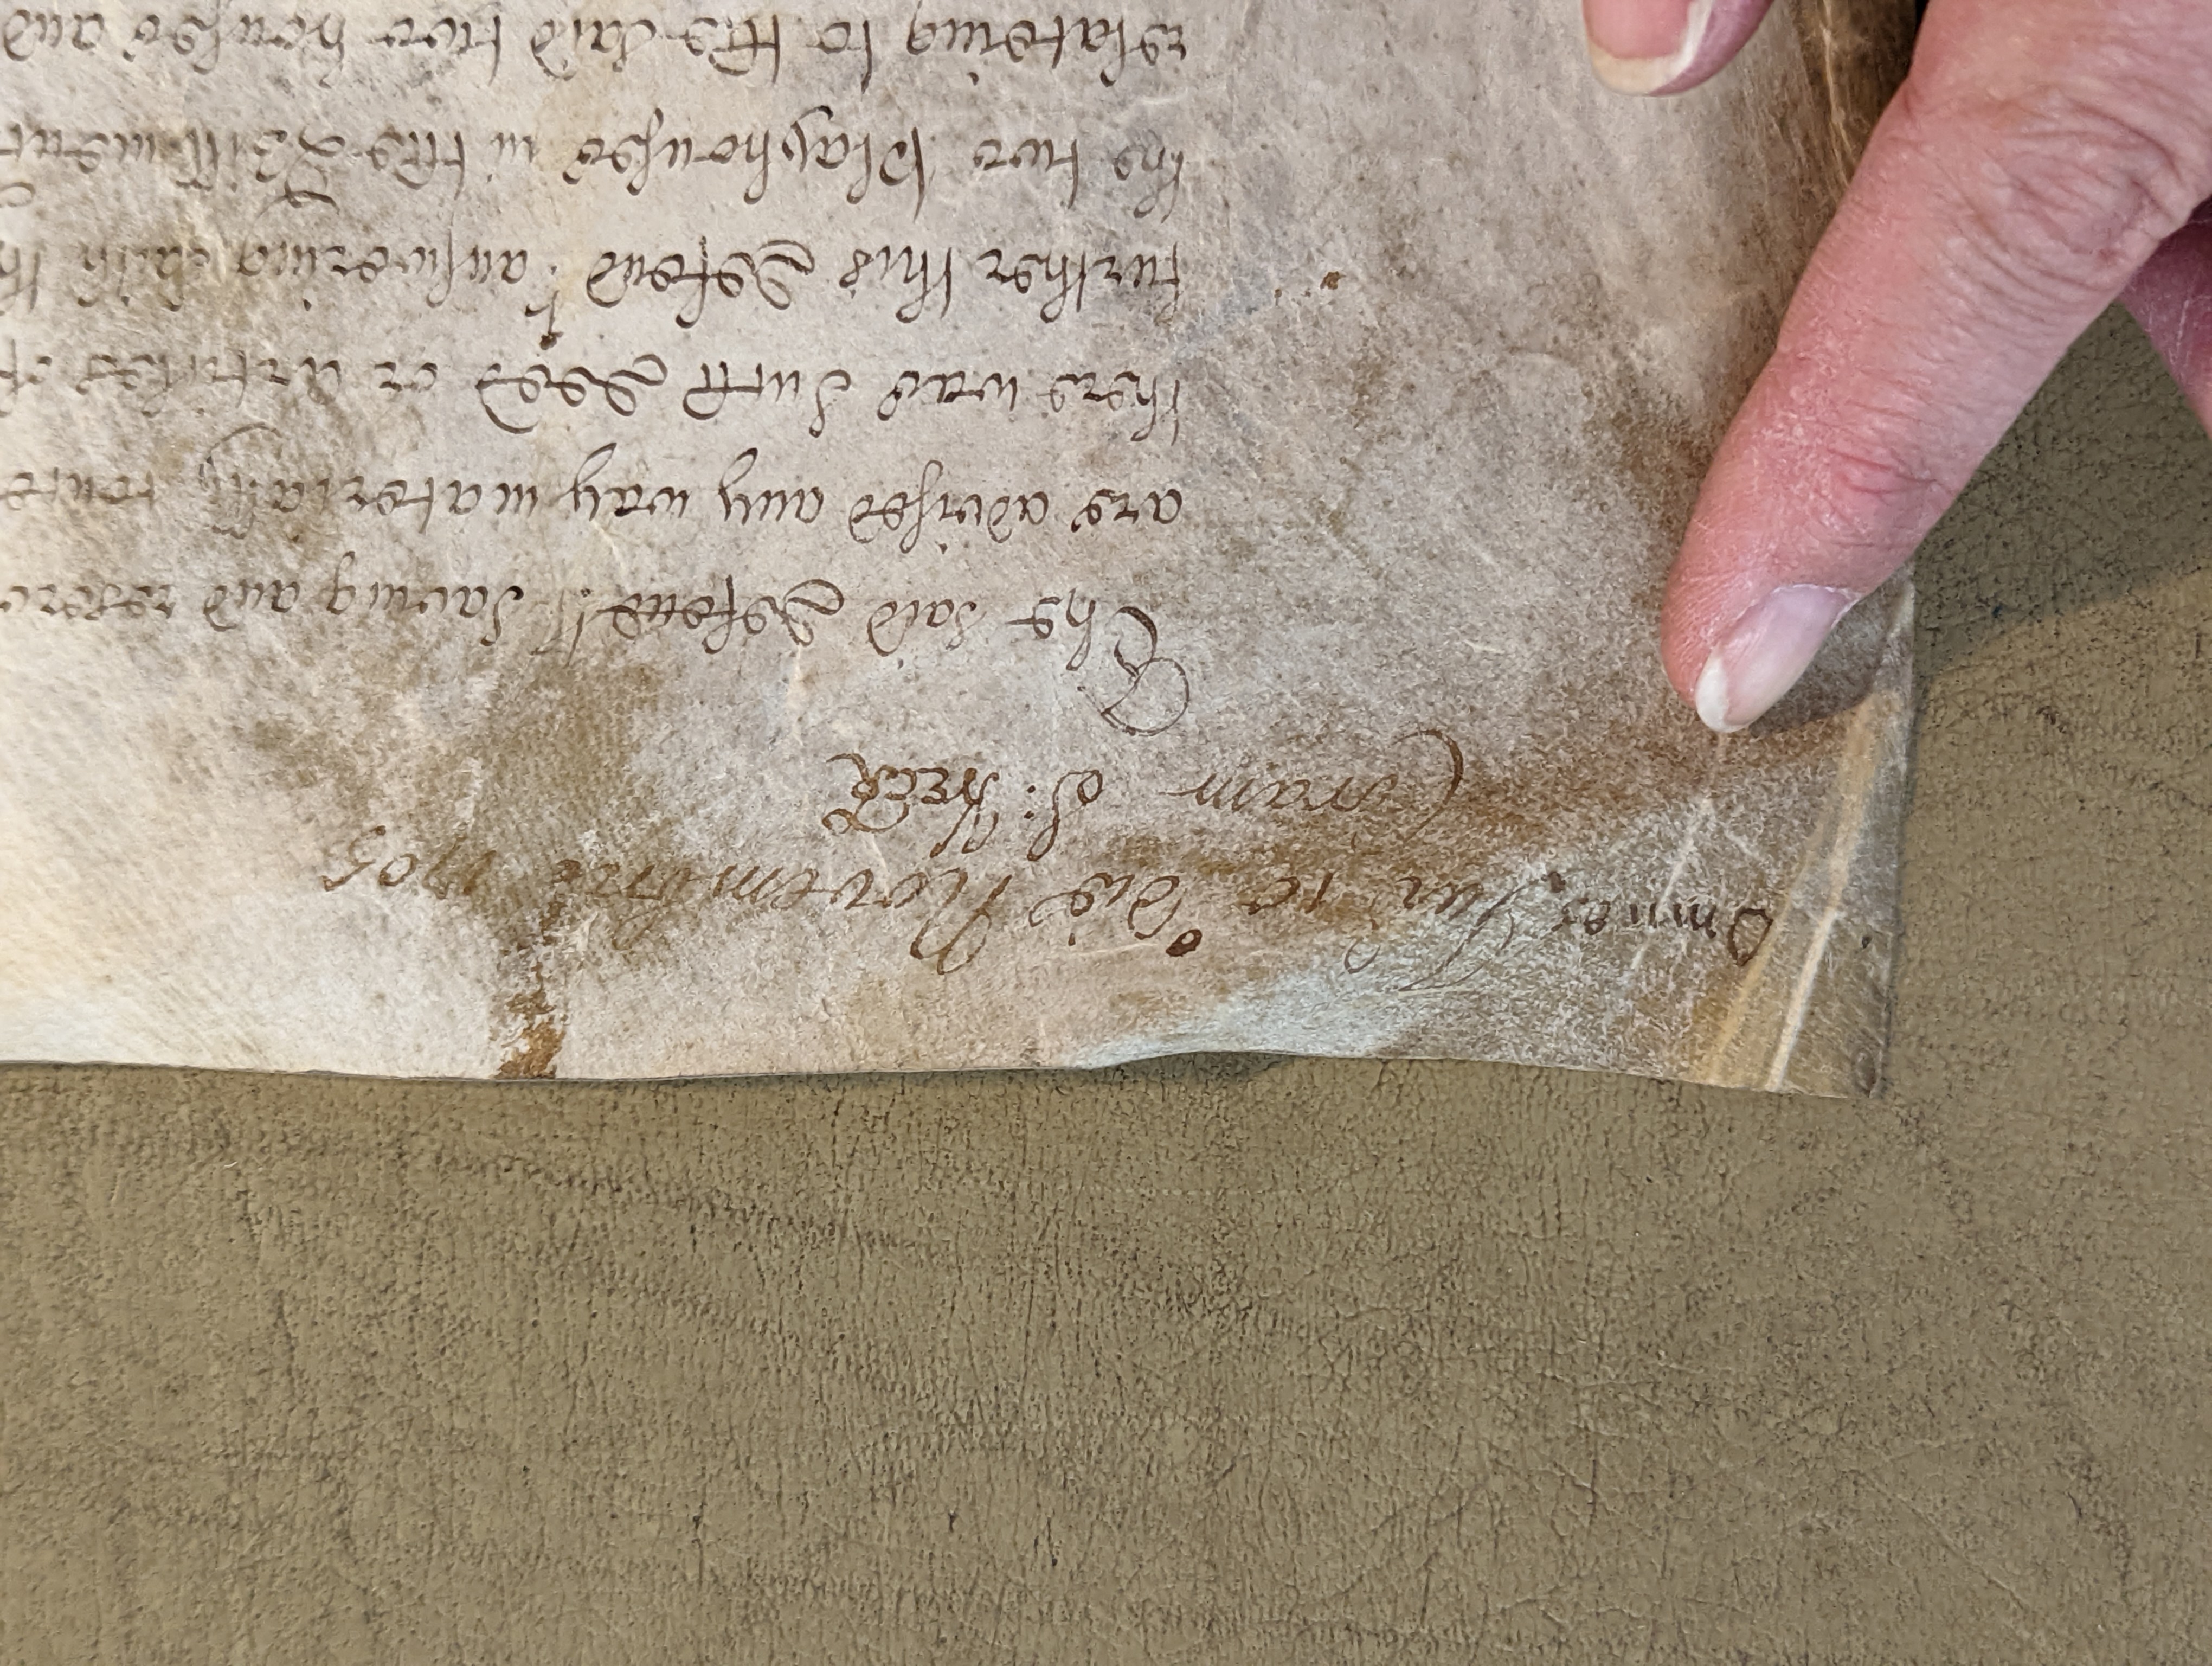 Omnes Jur 10° die Novembris 1705
Coram S: Keck
The said Defend:ts saving and reserv
are advised any way materially conce
there was such Deed or Articles of
further this Defend:t answering saith th
the two Playhouses in the Bill ment
relateing to the said two houses and